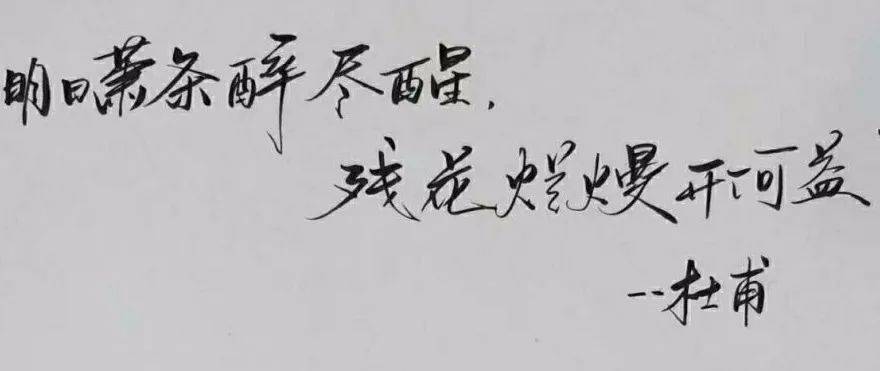 明日萧条醉尽醒，
残花烂熳开何益
--杜甫